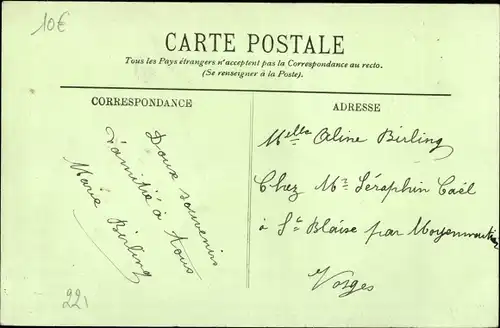 10€
CARTE POSTALE
Tous les Pays étrangers n'acceptent pas la Correspondance au recto.
(Se renseigner à la Poste).
CORRESPONDANCE
Doux souvenirs
d'amitié à tous
Marie Birling
221
ADRESSE
Melle Aline Birling
Chez Mr Séraphin Caël
à St Blaise par Moyenmoutier
Vosges